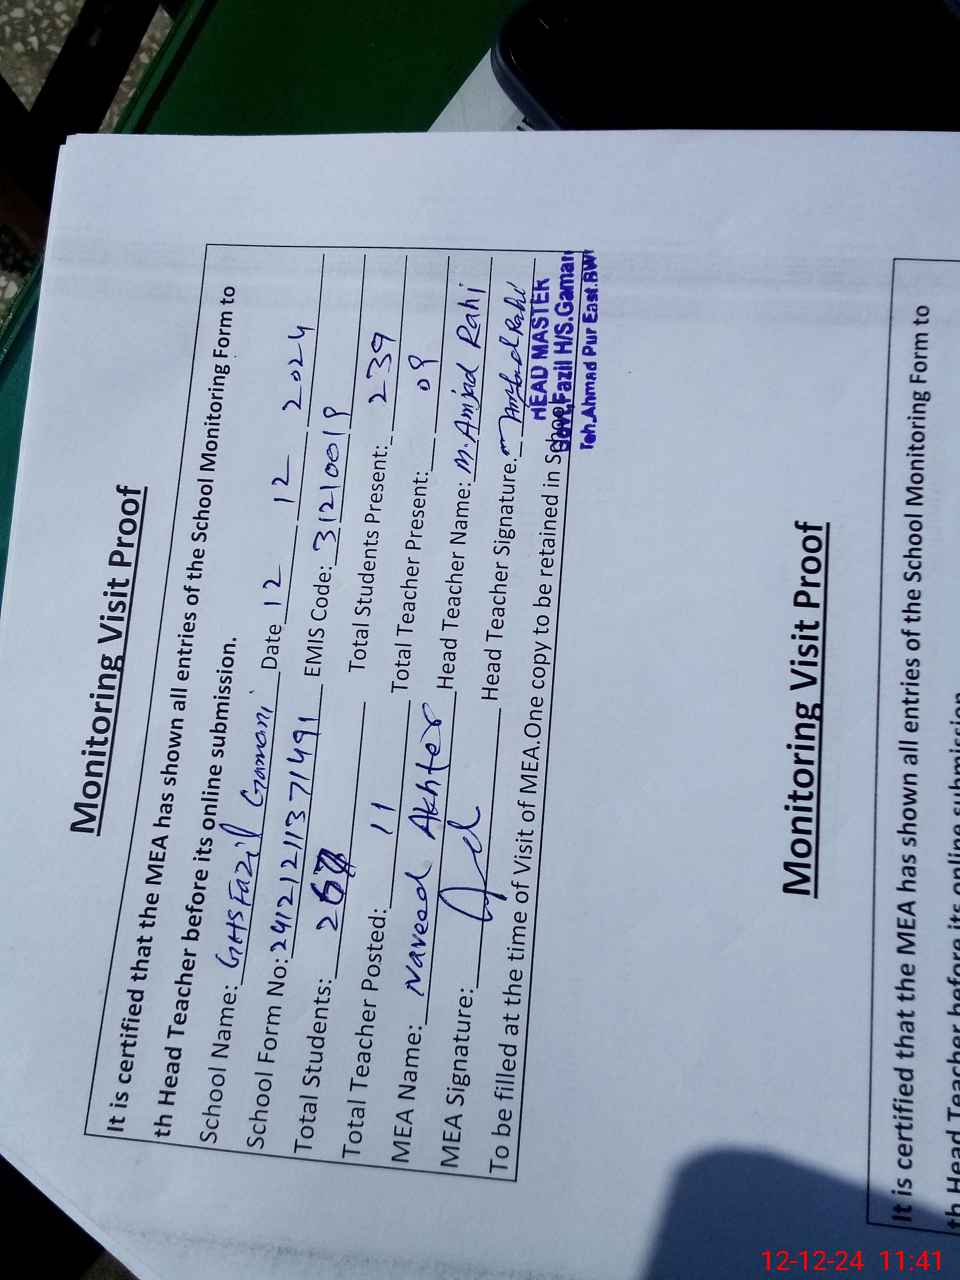 Monitoring Visit Proof
It is certified that the MEA has shown all entries of the School Monitoring Form to
th Head Teacher before its online submission.
School Name: GHS Fazil Gamani Date 12 12 2024
School Form No: 24121211371491 EMIS Code: 31210019
Total Students: Total Students Present: 239
Total Teacher Posted: 11 Total Teacher Present: 09
MEA Name: Naveed Akhter Head Teacher Name: M. Amjad Rahi
MEA Signature: Head Teacher Signature.
To be filled at the time of Visit of MEA.One copy to be retained in School
HEAD MASTER
Govt.Fazil H/S.Gamani
Teh.Ahmad Pur East.BW
Monitoring Visit Proof
It is certified that the MEA has shown all entries of the School Monitoring Form to
th Head Teacher before its online submission
12-12-24 11:41